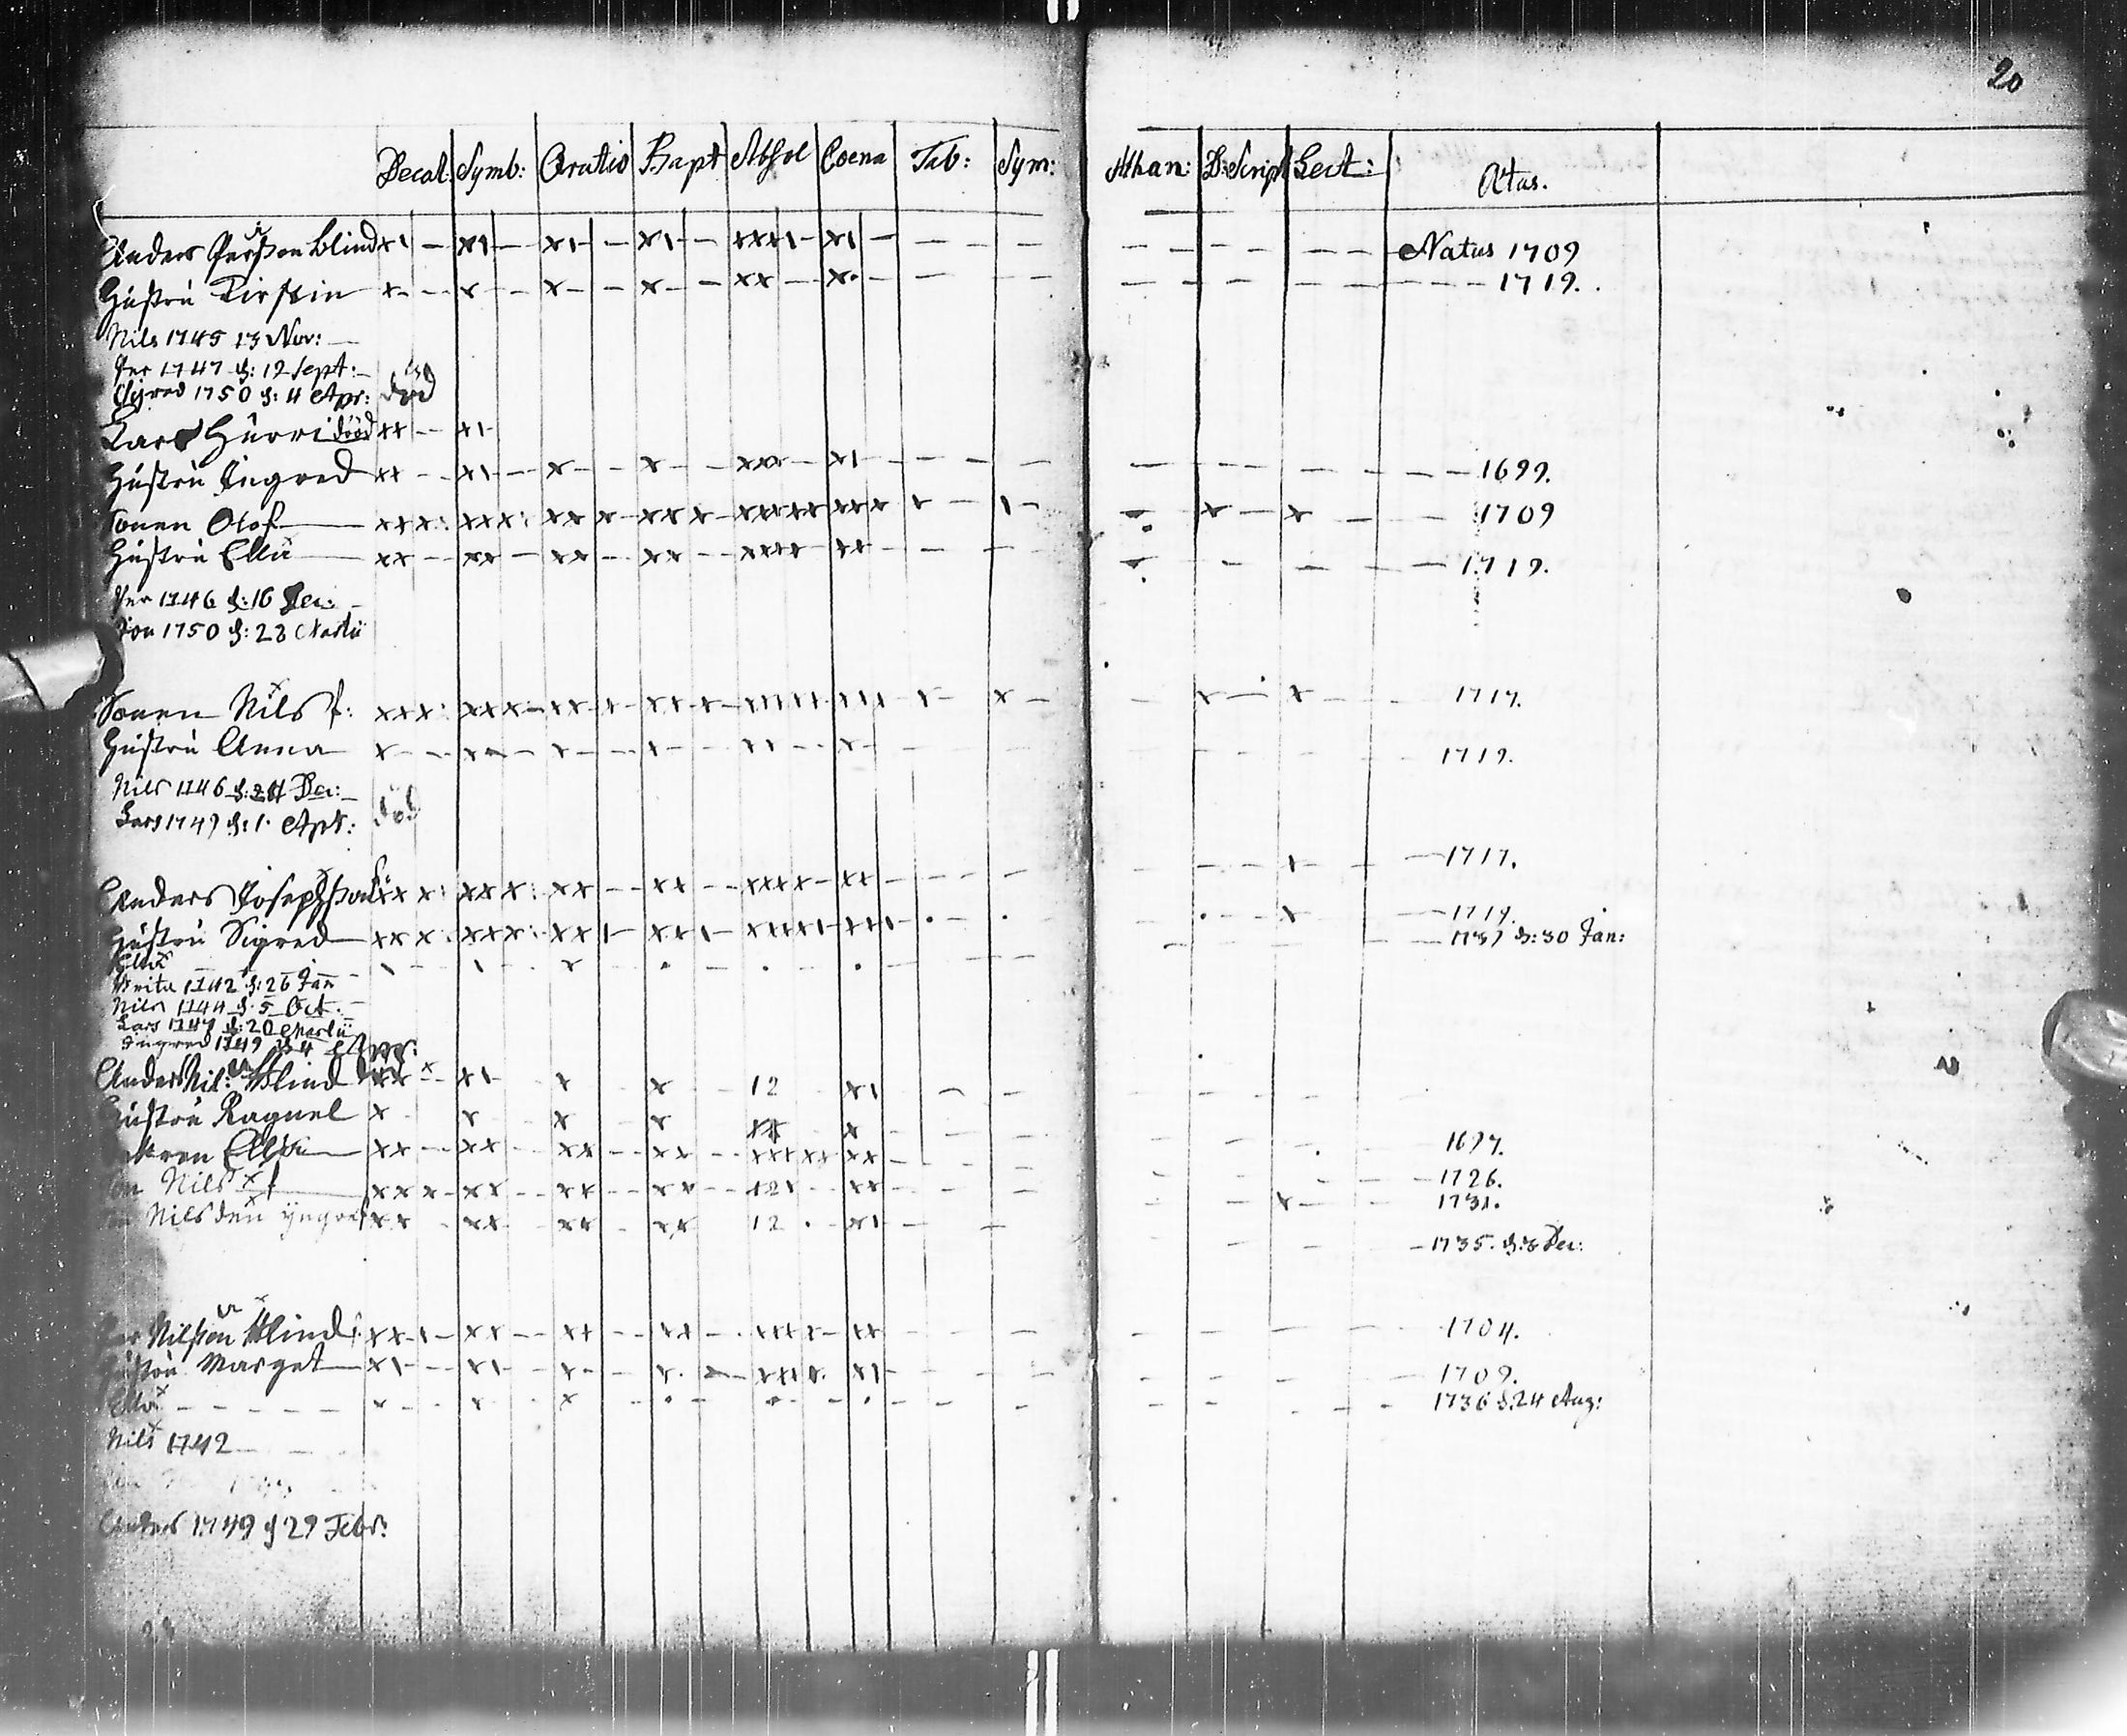 20
Decal: Symb: Oratio Bapt Absol Coena Tab: Sym: Athan: D: Script Lect: Ætas.
Anders Persson Blind x1 – x1 – x1 – x1 – xxx1 – x1 – – – – Natus 1709
Hústrú Kirstin x – – x – x – – x – – xx – x. – – – 1719.
Nils 1745 13 Nov: –
Per 1747 d: 12 Sept: –
Sigred 1750 d: 4 Apr: död
Lars Hurri död xx – x1 –
Hústrú Ingred xx – x1 – x – x – xxx – x1 – – – 1699.
Sonen Olof xxx: xxx: xxx – xxx – xxxxx xxx x – 1 – x – x – 1709
Hústrú Ella xx – xx – xx – xx – xxxx xx – – – 1719.
Per 1746 d: 16 Dec: –
Jon 1750 d: 28 Martii
Sonen Nils f: xxx: xxx – xxx xxx – xxx x – x – x – x – 1717.
Hústrú Anna x – – x – x – – x – xx – x – – 1719.
Nils 1746 d: 24 Dec: –
Lars 1749 d: 1 Apr: död
Anders Josephson xxx: xxx: xx – xx – xxxx – xx – – – x – 1717.
Hústrú Sigred xxx: xxx: xx1 – xx1 – – x – 1719.
Ella 1 – 1 – x – . – . – . 1737 d: 30 Jan:
Brita 1742 d: 26 Jan
Nils 1744 d: 5 Oct: –
Lars 1747 d: 20 Martii
Ingred 1749 d 4 Apr:
Anders Nils: Blind xx – x1 – x x 12 x1 – –
Hústrú Ragnel x x x x xx x – –
Ella xx – xx – xx – xx – xx – 1697.
Nils f xxx – xx – xx – xx 12 xx – – 1726.
Nils den yngre xx xx – xx – xx 12 . x1 – – x 1731.
– 1735. d: 3 Dec:
Per Nilsson Blind f: xx1 – xx – xx – xx – xxxx – xx – – 1704.
Hústrú Marget x1 – x1 – x – x. – xxxx. x1 – – 1709.
Ella – – – x – x . x – . – . – . – – 1736 d. 24 Aug:
Nils 1742
Anders 1749 d 29 Febr: